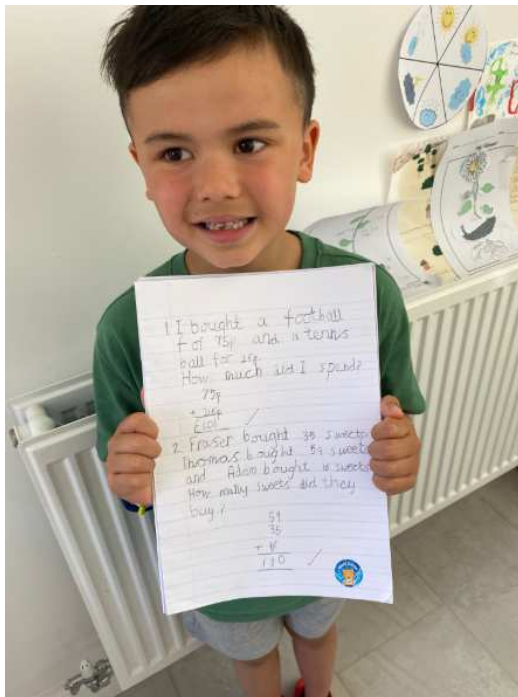 1. I bought a football
for 75p and a tennis
ball for 26p.
How much did I spend?
75p
+ 26p
£1.01
2. Fraser bought 35 sweets
Thomas bought 59 sweets
and Adam bought 16 sweets
How many sweets did they
buy?
59
35
+
110